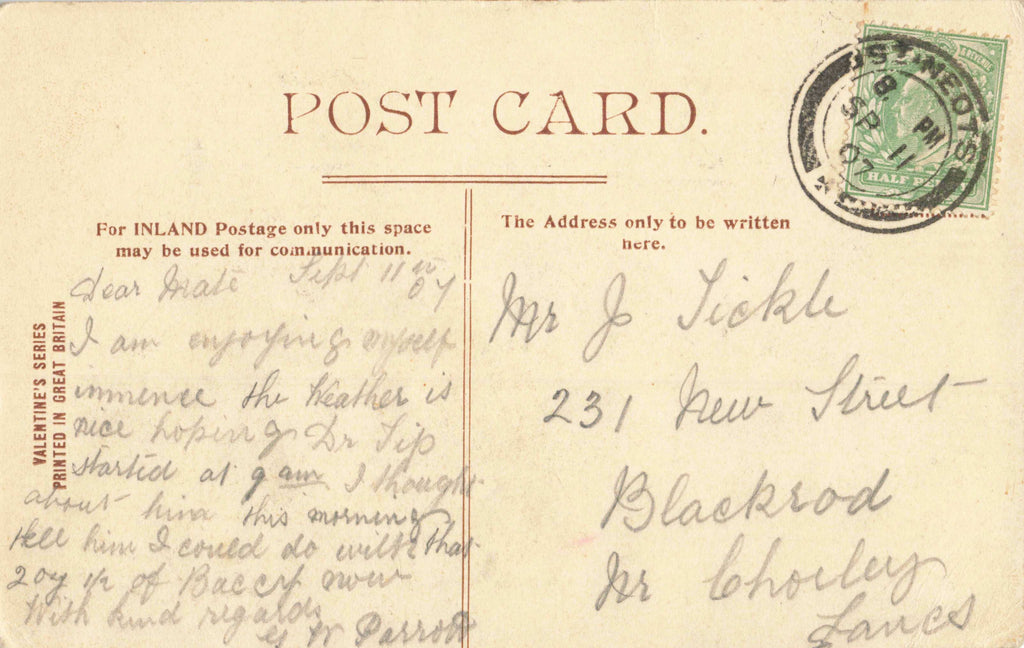 POST CARD.
For INLAND Postage only this space
may be used for communication.
The Address only to be written
here.
VALENTINE'S SERIES
PRINTED IN GREAT BRITAIN
ST. NEOTS
8 PM
SP 11
07
HALF PE
Dear Mate Sept 11th
07
I am enjoying myself
immence the Weather is
nice hoping Dr Tip
started at 9 am I thought
about him this morning
tell him I could do with that
2 oz of Baccy now
With kind regards
G W Parrott
Mr J Tickle
231 New Street
Blackrod
Nr Chorley
Lancs